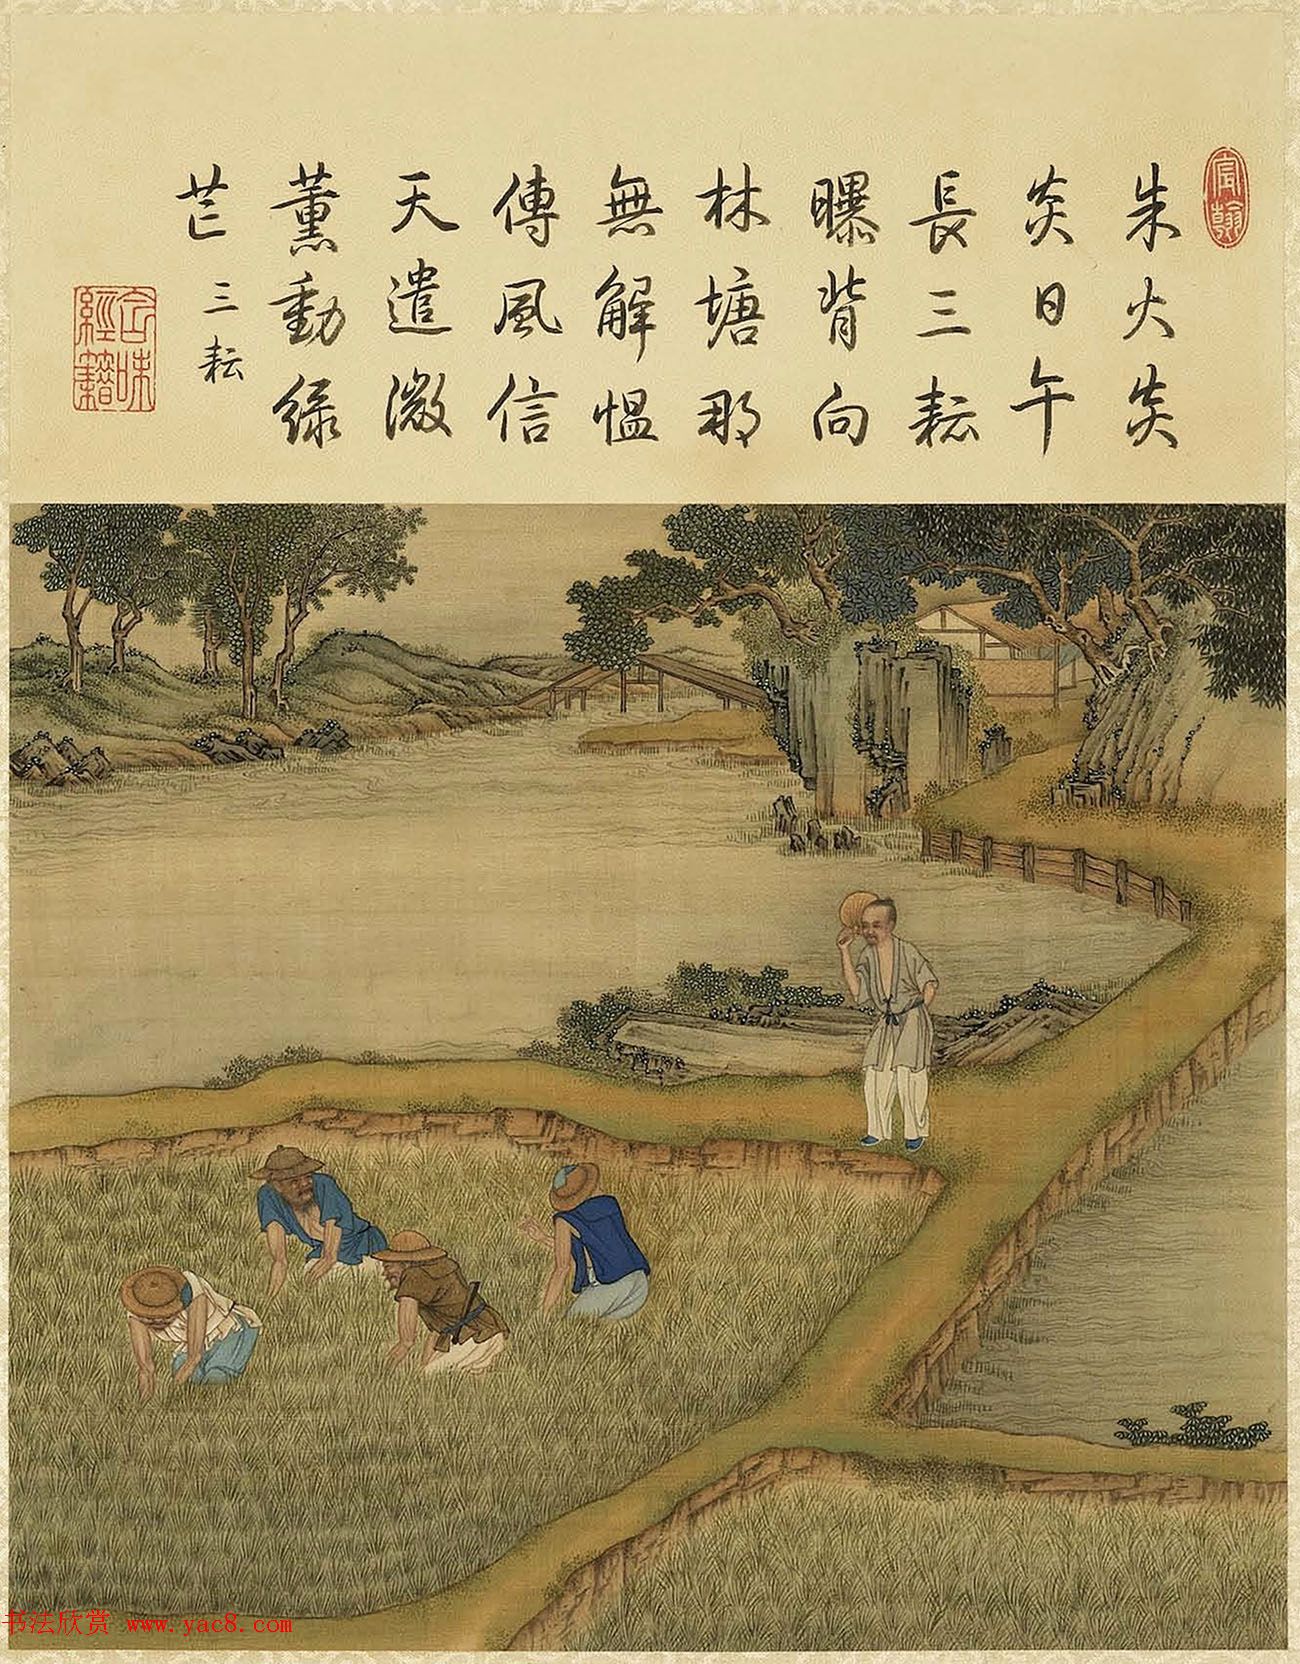 宸翰
朱火炎
炎日午
長三耘
曝背向
林塘那
無解愠
傳風信
天遣微
薰動緑
芒
三耘
含味
經籍
书法欣赏 www.yac8.com